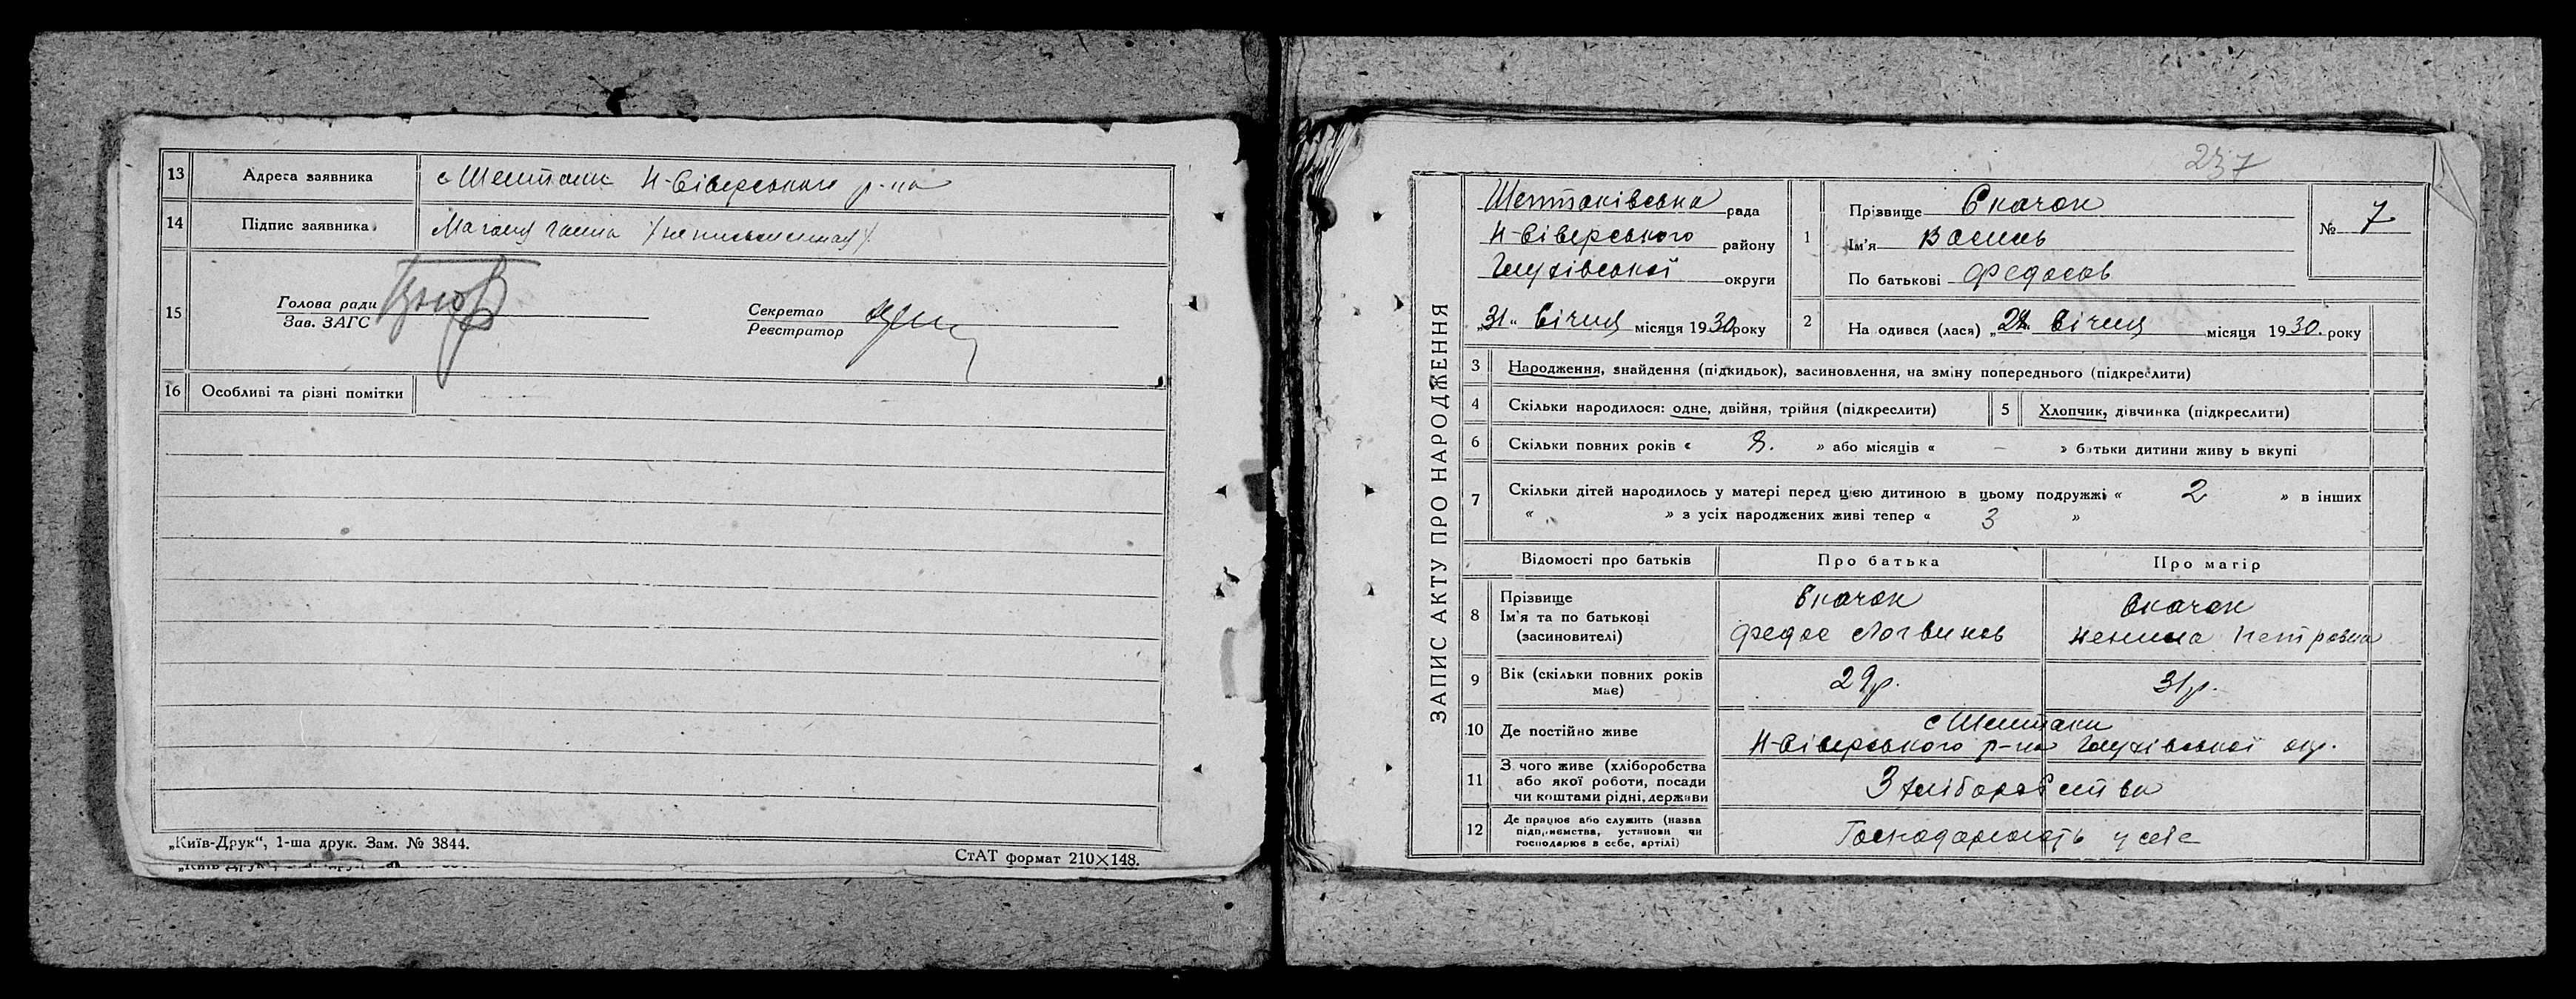 13 Адреса заявника с Шептаки Н-Сіверського р-на
14 Підпис заявника Магоня Ганна /неписьменная/
15 Голова ради
Зав. ЗАГС
Секретар
Реєстратор
16 Особливі та різні помітки
„Київ-Друк“, 1-ша друк. Зам. № 3844.
СтАТ формат 210×148.
237
ЗАПИС АКТУ ПРО НАРОДЖЕННЯ
Шептаківська рада
Н-Сіверського району
Глухівської округи
„31“ Січня місяця 1930 року
1 Прізвище Скачок
Ім'я Василь
По батькові Федосов
№ 7
2 На одився (лася) „28 Січня місяця 1930. року
3 Народження, знайдення (підкидьок), засиновлення, на зміну попереднього (підкреслити)
4 Скільки народилося: одне, двійня, трійня (підкреслити) 5 Хлопчик, дівчинка (підкреслити)
6 Скільки повних років « 8. » або місяців « – » батьки дитини живу ь вкупі
7 Скільки дітей народилось у матері перед цією дитиною в цьому подружжі « 2 » в інших
« » з усіх народжених живі тепер « 3 »
Відомості про батьків Про батька Про матір
8 Прізвище Скачок Скачок
Ім'я та по батькові
(засиновителі) Федос Логвинов Петровна
9 Вік (скільки повних років має) 29 р. 31 р.
10 Де постійно живе с Шептаки
Н-Сіверського р-на Глухівської окр.
11 З чого живе (хліборобства
або якої роботи, посади
чи коштами рідні, держави З хліборобства
12 Де працює або служить (назва
підприємства, установи чи
господарює в себе, артілі) Господарюють у себе